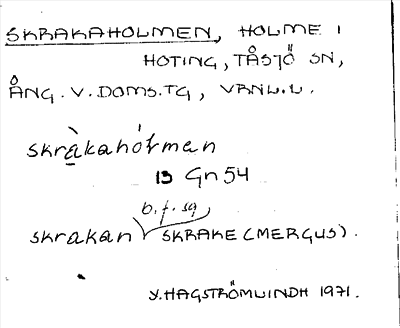 SKRAKAHOLMEN, HOLME I
HOTING, TÅSJÖ SN,
ÅNG. V. DOMS.TG, VRNL.L.
skràkahórmen
13 Gn 54
b. f. sg
skrakan SKRAKE (MERGUS).
Y. HAGSTRÖMLINDH 1971.